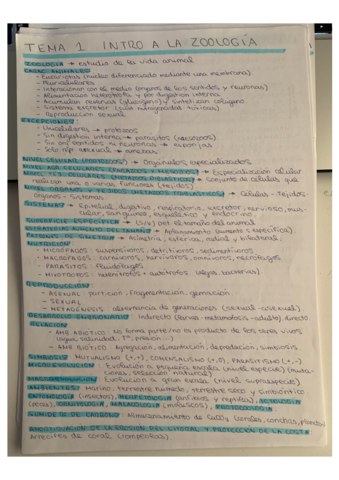 TEMA 1 INTRO A LA ZOOLOGÍA
ZOOLOGÍA → estudio de la vida animal
CARAC. ANIMALES
- Eucariotas (núcleo diferenciado mediante una membrana)
- Pluricelulares
- Interaccionan con el medio (órganos de los sentidos y neuronas)
- Alimentación heterótrofa y por digestión interna
- Acumulan reservas (glucógeno) y sintetizan colágeno
- Sistema excretor (sust. nitrogenadas tóxicas)
- Reproducción sexual
EXCEPCIONES
- Unicelulares → protozoos
- Sin digestión interna → parásitos
- Sin org sentidos ni neuronas → esponjas
- Solo rep. asexual → amebas
NIVEL CELULAR (PROTOZOOS) → Orgánulos especializados
→ Especialización celular
→ Conjunto de células que
realizan una o varias funciones (tejidos)
→ Células - tejidos
órganos - Sistemas
SISTEMAS → Epitelial, digestivo, respiratorio, excretor, nervioso, mus-
cular, sanguíneo, esquelético y endocrino
SUPERFICIE ESPECÍFICA → (S/V) dep. el tamaño del animal
→ Aplanamiento (aumento s. específica)
PATRONES DE SIMETRÍA → Asimetría, esférica, radial y bilateral.
NUTRICIÓN
- MICRÓFAGOS: suspensívoros, detritívoros, sedimentívoros
- MACRÓFAGOS: carnívoros, herbívoros, omnívoros, necrófagos
- PARÁSITOS: fluidófagos
- MIXOTROFOS: heterótrofos + autótrofos (algas, bacterias)
REPRODUCCIÓN
- ASEXUAL: partición, fragmentación, gemación
- SEXUAL
- METAGÉNESIS: alternancia de generaciones (sexual-asexual)
Indirecto (larva-metamorfosis-adulto), directo
RELACIÓN
- AMB ABIÓTICO: No forma parte / no es producto de los seres vivos
(agua, salinidad, Tª, presión...)
- AMB BIÓTICO: Agregación, alimentación, depredación, simbiosis
SIMBIOSIS: MUTUALISMO (+,+), COMENSALISMO (+,0), PARASITISMO (+,-)
MICROEVOLUCIÓN: Evolución a pequeña escala (nivel especie) (muta-
ciones, selección natural)
MACROEVOLUCIÓN: Evolución a gran escala (nivel supraespecie)
AMBIENTES: Marino, terrestre húmedo, terrestre seco y simbióntico
ENTOMOLOGÍA (insectos), HERPETOLOGÍA (anfibios y reptiles),
ORNITOLOGÍA, MALACOLOGÍA (moluscos), PROTOZOOLOGÍA
SUMIDERO DE CARBONO: Almacenamiento de CaCO₃ (corales, conchas,
AMORTIGUACIÓN DE LA EROSIÓN DEL LITORAL Y PROTECCIÓN DE LA COSTA
Arrecifes de coral